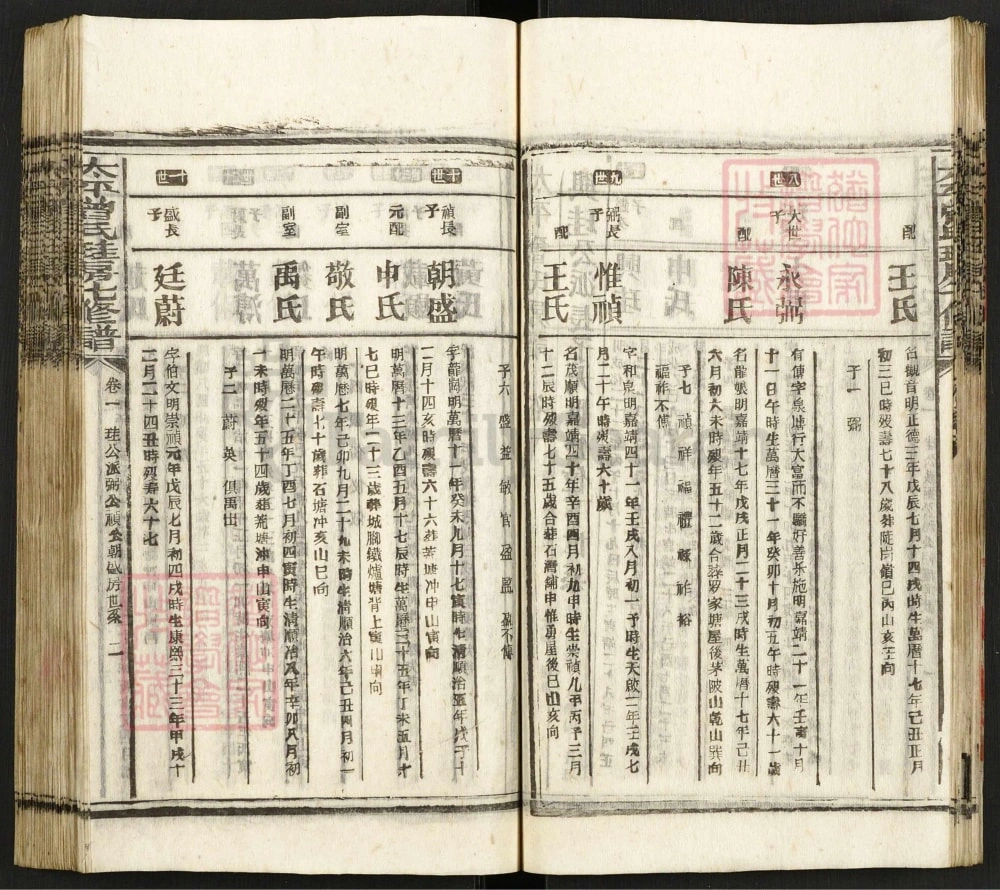 配
王氏
名觀音明正德三年戊辰七月十四戌時生萬曆十七年己丑正月
初三巳時歿壽七十八歲葬
巳丙山亥壬向
子一 弼
八世
大世
子
永弼
有傳字泉塘行大富而不驕好善樂施明嘉靖二十一年壬寅十月
十一日午時生萬曆三十一年癸卯十月初五午時歿壽六十一歲
配
陳氏
名龍娘明嘉靖十七年戊戌正月二十三戌時生萬曆十七年己丑
六月初六未時歿年五十二歲合葬羅家塘屋後茅陂山乾山巽向
子七 禎 祥 福 禮 祿 祚 裕
福祚不傳
九世
弼長
子
惟禎
字和泉明嘉靖四十一年壬戌八月初一子時生天啟二年壬戌七
月二十午時歿壽六十歲
配
王氏
名茂順明嘉靖四十年辛酉四月初九申時生崇禎九年丙子三月
十二辰時歿壽七十五歲合葬石灣鋪申惟勇屋後巳山亥向
子六 盛 益 敏 官 盈 盟 盈不傳
十世
禎長
子
朝盛
字龍閣明萬曆十一年癸未九月十七寅時生清順治五年戊子十
二月十四亥時歿壽六十六葬荒塘冲申山寅向
元配
申氏
明萬曆十三年乙酉五月十七辰時生萬曆三十五年丁未五月十
七巳時歿年二十三歲葬城腳鐵爐塘背上寅山申向
副室
敬氏
明萬曆七年己卯九月二十九未時生清順治六年己丑四月初一
午時歿壽七十歲葬石塘冲亥山巳向
副室
禹氏
明萬曆二十五年丁酉七月初四寅時生清順治八年辛卯八月初
十未時歿年五十四歲葬荒塘冲申山寅向
子二 蔚 英 俱禹出
十一世
盛長
子
廷蔚
字伯文明崇禎元年戊辰七月初四戌時生康熙三十三年甲戌十
二月二十四丑時歿壽六十七
太平曾氏珪房七修譜
卷一 珪公派弼公禎公朝盛房世系 二